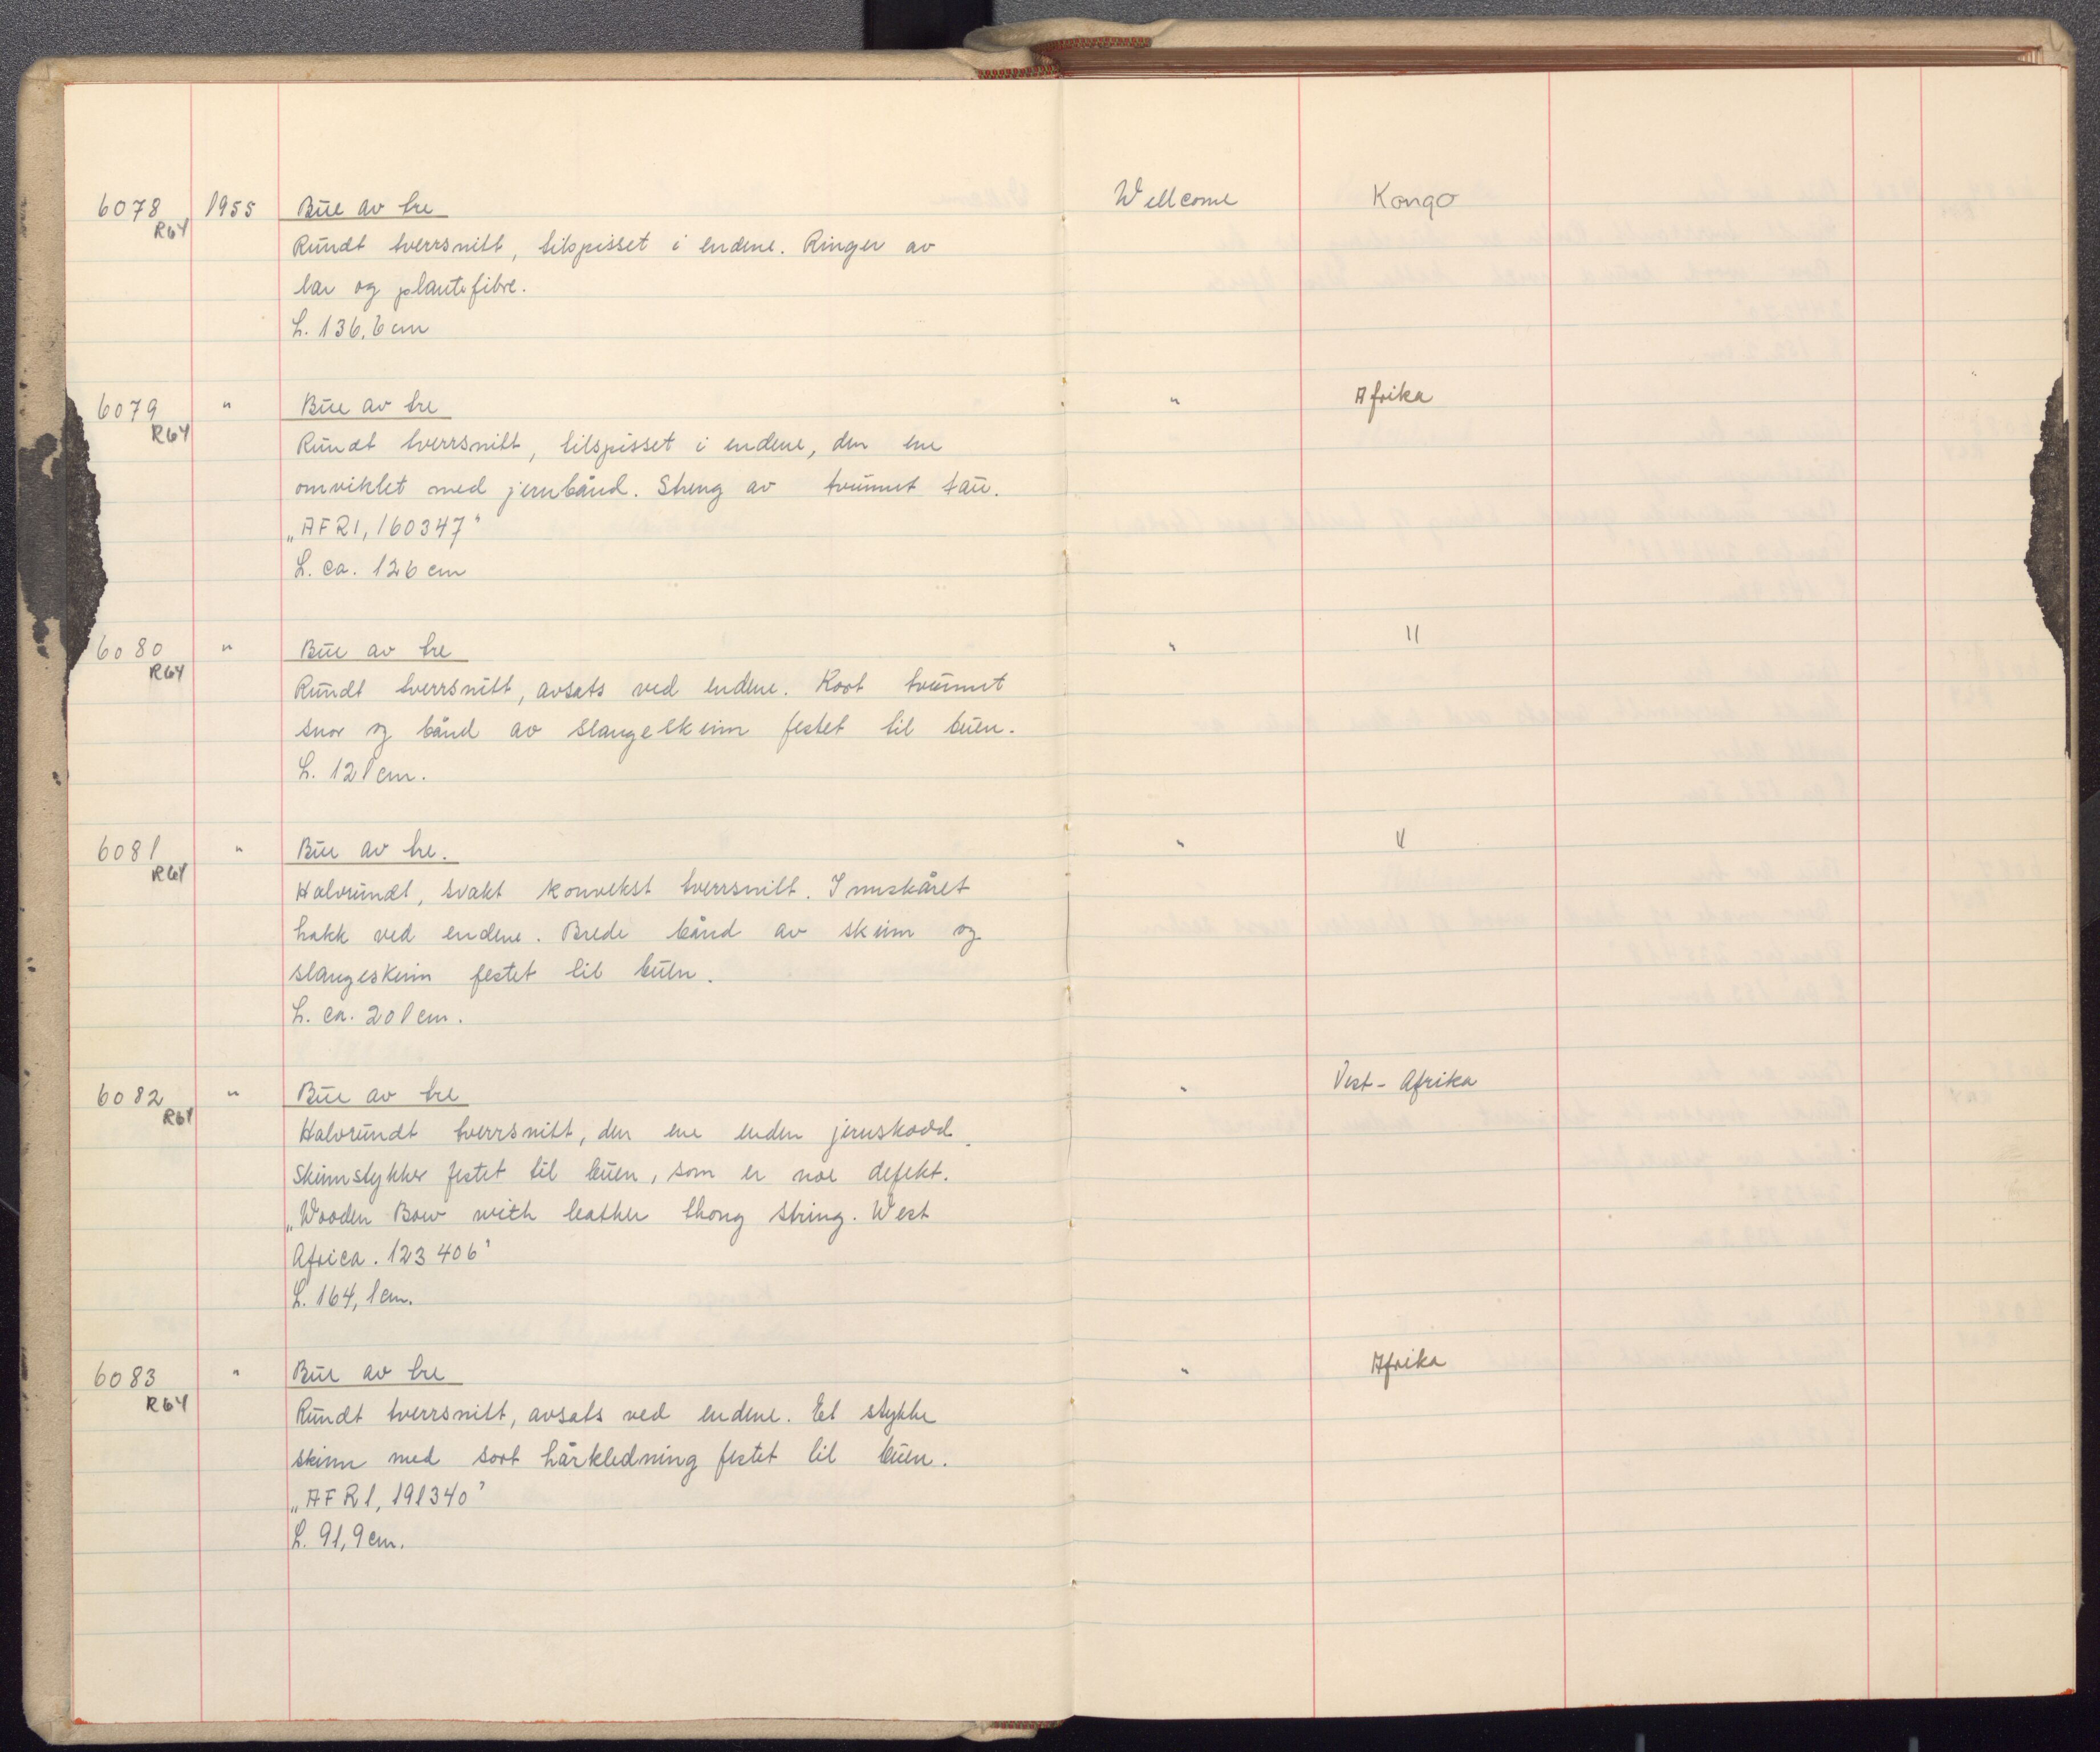 6078 1955 Bue av tre Wellcome Kongo
R64
Rundt tverrsnitt, tilspisset i endene. Ringer av
lær og plantefibre.
L. 136,6 cm
6079 " Bue av tre " Afrika
R64
Rundt tverrsnitt, tilspisset i endene, den ene
omviklet med jernbånd. Streng av tvunnet tau.
„AFRI, 160347"
L. ca. 126 cm
6080 " Bue av tre " "
R64
Rundt tverrsnitt, avsats ved endene. Kort tvunnet
snor og bånd av slangeskinn festet til buen.
L. 121 cm.
6081 " Bue av tre. " "
R64
Halvrundt, svakt konvekst tverrsnitt. Innskåret
hakk ved endene. Brede bånd av skinn og
slangeskinn festet til buen.
L. ca. 201 cm.
6082 " Bue av tre " Vest-Afrika
R64
Halvrundt tverrsnitt, den ene enden jernskodd.
Skinnstykker festet til buen, som er noe defekt.
„Wooden Bow with leather thong string. West
Africa. 123406"
L. 164,1 cm.
6083 " Bue av tre " Afrika
R64
Rundt tverrsnitt, avsats ved endene. Et stykke
skinn med sort hårkledning festet til buen.
„AFRI, 191340"
L. 91,9 cm.